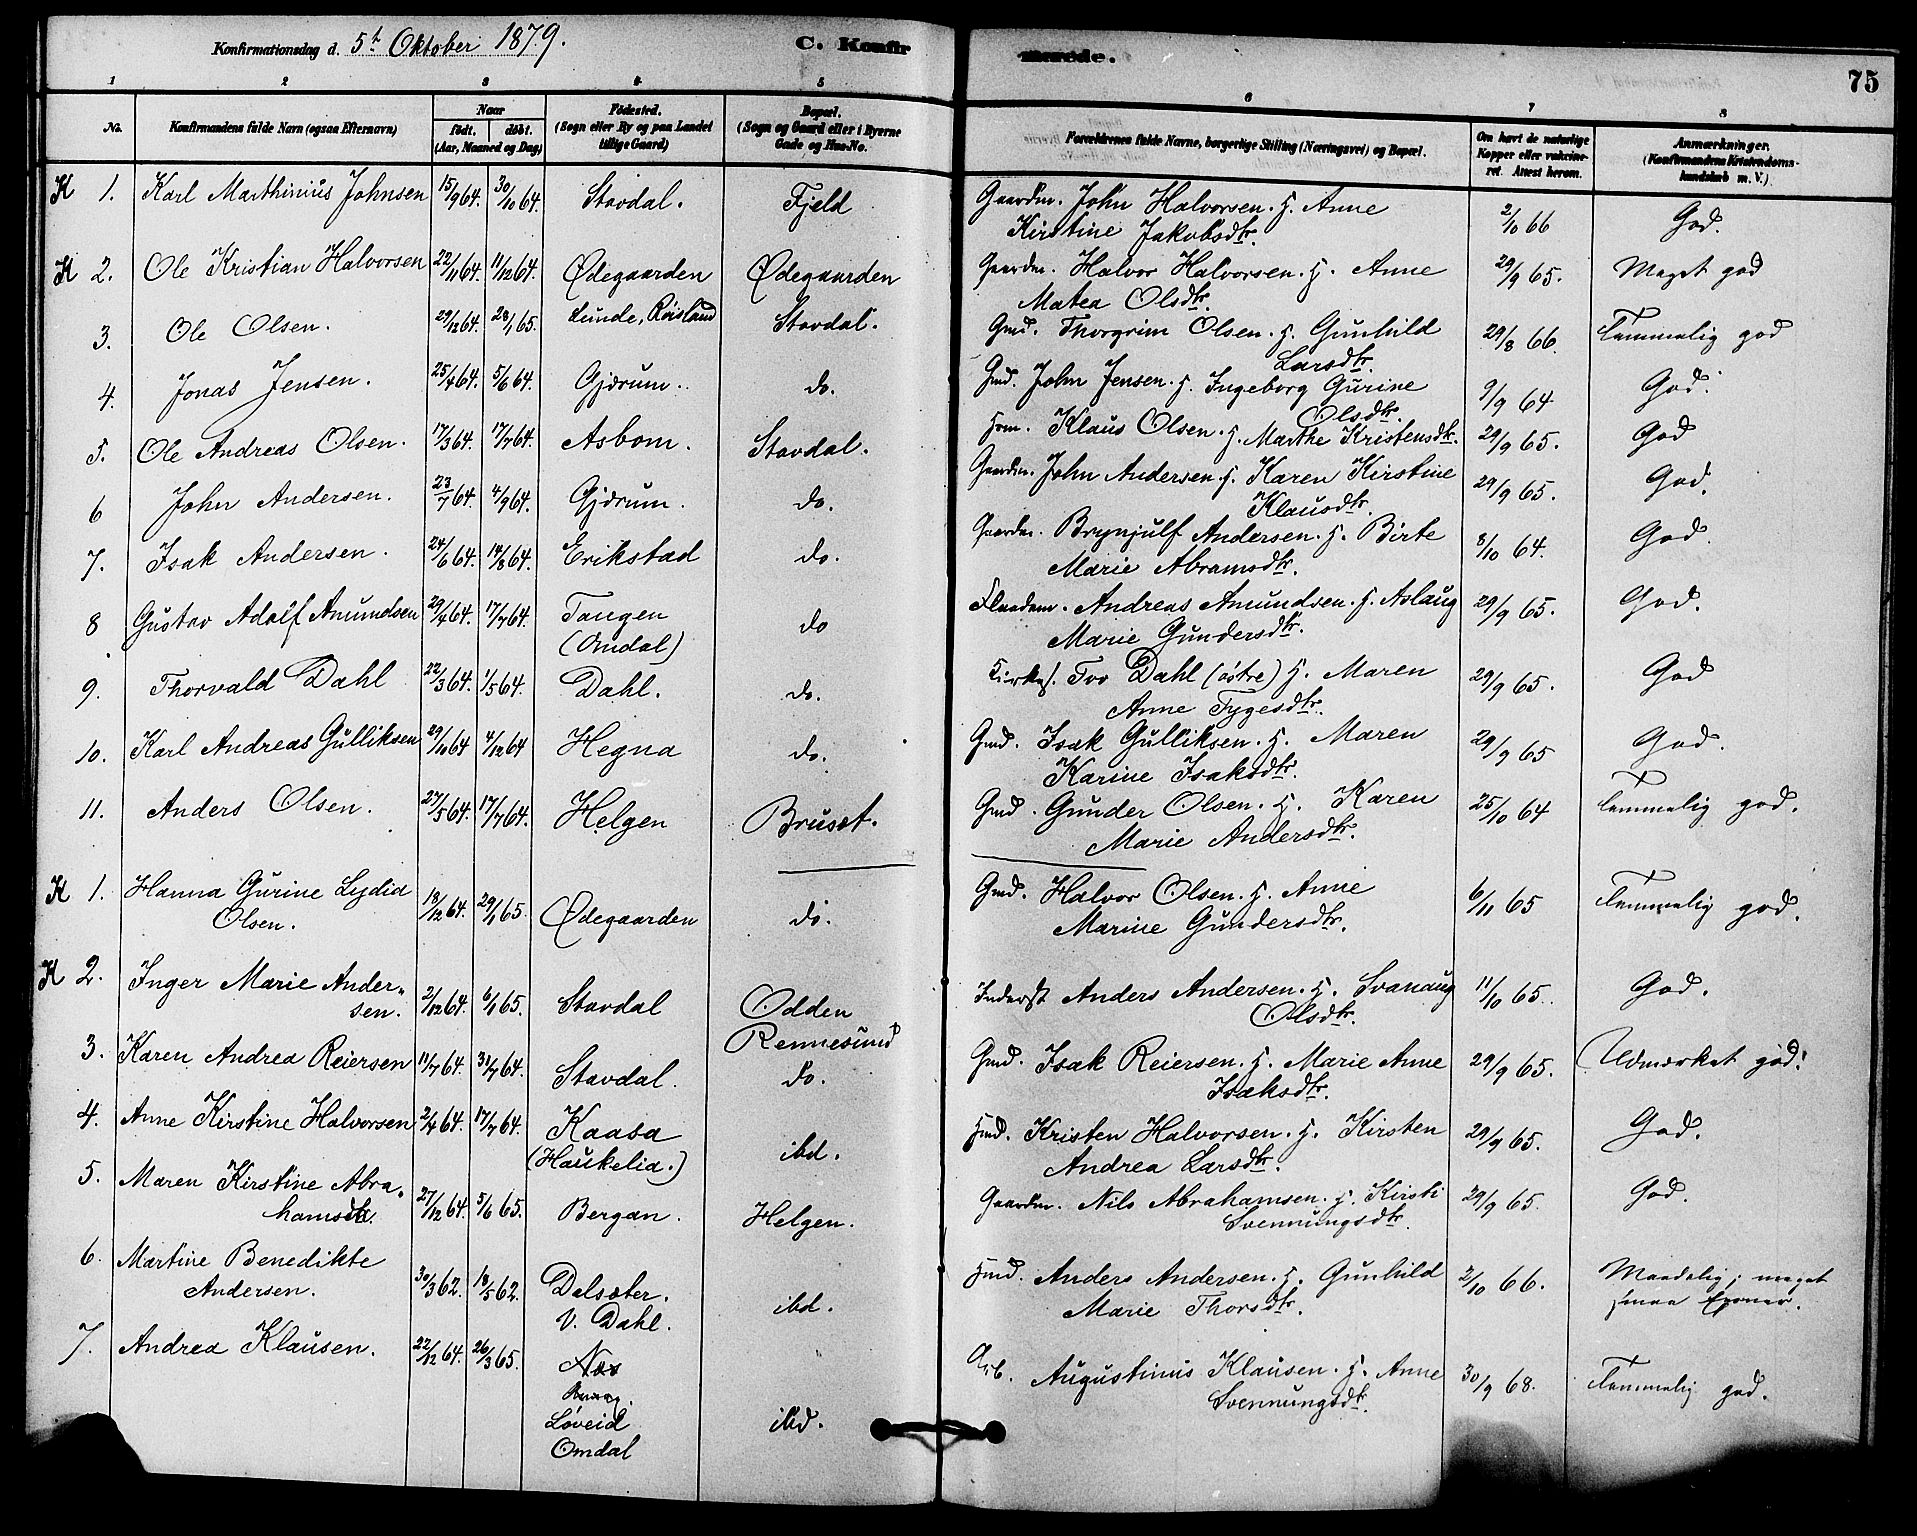 Konfirmationsdag d. 5t Oktober 1879. C. Konfirmerede. 75
1 2 3 4 5 6 7 8
No. Konfirmandens fulde Navn (ogsaa Efternavn) Naar født. døbt. (Aar, Maaned og Dag) Fødested. (Sogn eller By og paa Landet tillige Gaard) Bopæl. (Sogn og Gaard eller i Byerne Gade og Hus-No. Forældrenes fulde Navne, borgerlige Stilling (Næringsvei) og Bopæl. Om havt de naturlige Kopper eller vakcineret. Attest herom. Anmærkninger. (Konfirmandens Kristendomskundskab m. V.)
K 1. Karl Marthinius Johnsen 15/9 64. 30/10 64. Stavdal. Fjeld Gaardm. John Halvorsen. H. Anne 2/10 66 God.
Kirstine Jakobsdtr.
K 2. Ole Kristian Halvorsen 22/11 64. 11/12 64. Ødegaarden Ødegaarden Gaardm. Halvor Halvorsen. H. Anne 29/9 65. Meget god
Matea Olsdtr.
3. Ole Olsen. 29/12 64. 28/1 65. Lunde, Roisland Stavdal. Gmd. Thorgrim Olsen. H. Gunhild 29/8 66. Temmelig god
Larsdtr.
4. Jonas Jensen. 25/4 64. 5/6 64. Gjærum. do. Gmd. John Jensen. H. Ingeborg Gurine 9/9 64 God.
Olsdtr.
5. Ole Andreas Olsen. 17/3 64. 17/7 64. Asbom. Stavdal. Klaus Olsen. H. Marthe Kristensdtr. 29/9 65. God
6 John Andersen. 23/7 64. 4/9 64. Gjærum. do. Gaardm. John Andersen. H. Karen Kirstine 29/9 65. God.
Klausdtr.
7. Isak Andersen. 24/6 64. 14/8 64. Erikstad do. Gaardm. Brynjulf Andersen. H. Birte 8/10 64. God.
Marie Abramsdtr.
8 Gustav Adolf Amundsen 29/4 64. 17/7 64. Tangen do Andreas Amundsen. H. Aslaug 29/9 65. God.
(Omdal) Marie Gundersdtr.
9. Thorvald Dahl 22/3 64. 1/5 64. Dahl. do. Kirkes. Tov Dahl (østre) H. Maren 29/9 65. God
Anne Tygesdtr.
10. Karl Andreas Gulliksen 29/10 64 4/12 64 Hegna do. Gmd. Isak Gulliksen. H. Maren 29/9 65 God.
Karine Isaksdtr.
11. Anders Olsen. 27/5 64. 17/7 64. Helgen Brusæt. Gmd. Gunder Olsen. H. Karen 25/10 64 Temmelig god.
Marie Andersdtr.
K 1. Hanna Gurine Lydia 18/12 64. 29/1 65. Ødegaarden do. Gmd. Halvor Olsen. H. Anne 6/11 65 Temmelig god.
Olsen. Marine Gundersdtr.
K 2. Inger Marie Ander- 2/12 64. 6/1 65. Stavdal Odden Inderst Anders Andersen. H. Svanaug 11/10 65. God.
sen. Rennesund Olsdtr.
3. Karen Andrea Reiersen 11/7 64. 31/7 64. Stavdal. do. Gmd. Isak Reiersen. H. Marie Anne 29/9 65. Udmærket god!
Isaksdtr.
4. Anne Kirstine Halvorsen 2/4 64. 17/7 64. Kaasa ibd. Hmd. Kristen Halvorsen. H. Kirsten 29/9 65. God.
(Haukelia.) Andrea Larsdtr.
5. Maren Kirstine Abra- 27/12 64. 5/6 65. Bergan. Helgen. Gaardm. Nils Abrahamsen. H. Kirsti 29/9 65. God.
hamsdtr. Svennungsdtr.
6. Martine Benedikte 30/3 62. 18/5 62. Dalsæter. ibd. Hmd. Anders Andersen. H. Gunhild 2/10 66. Maadelig; meget
Andersen. V. Dahl. Marie Thorsdtr. smaa Evner.
7. Andrea Klausen. 22/12 64. 26/3 65. Næs ibd. Arb. Augustinus Klausen. H. Anne 30/9 68. Temmelig god.
Svennungsdtr.
Løveid
Omdal